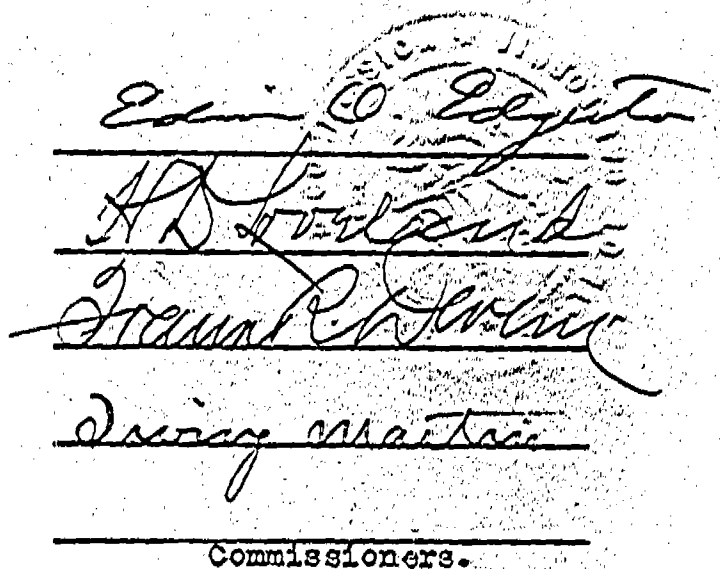 Edwin O. Edgerton
H D Loveland
Frank R. Devlin
Irving Martin
Commissioners.